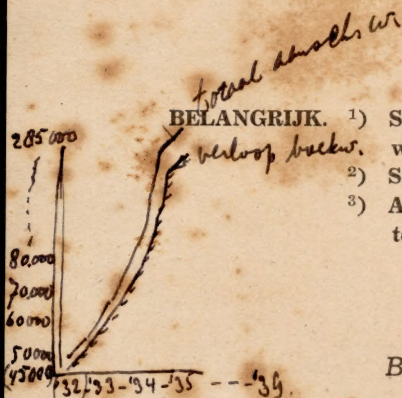 totaal aansch.w
BELANGRIJK. 1) S
verloop boekw. w
2) S
3) A
t
285000
80.000
70.000
60000
50000
(45000)
'32 '33 - '34 - '35 - - - '39.
B